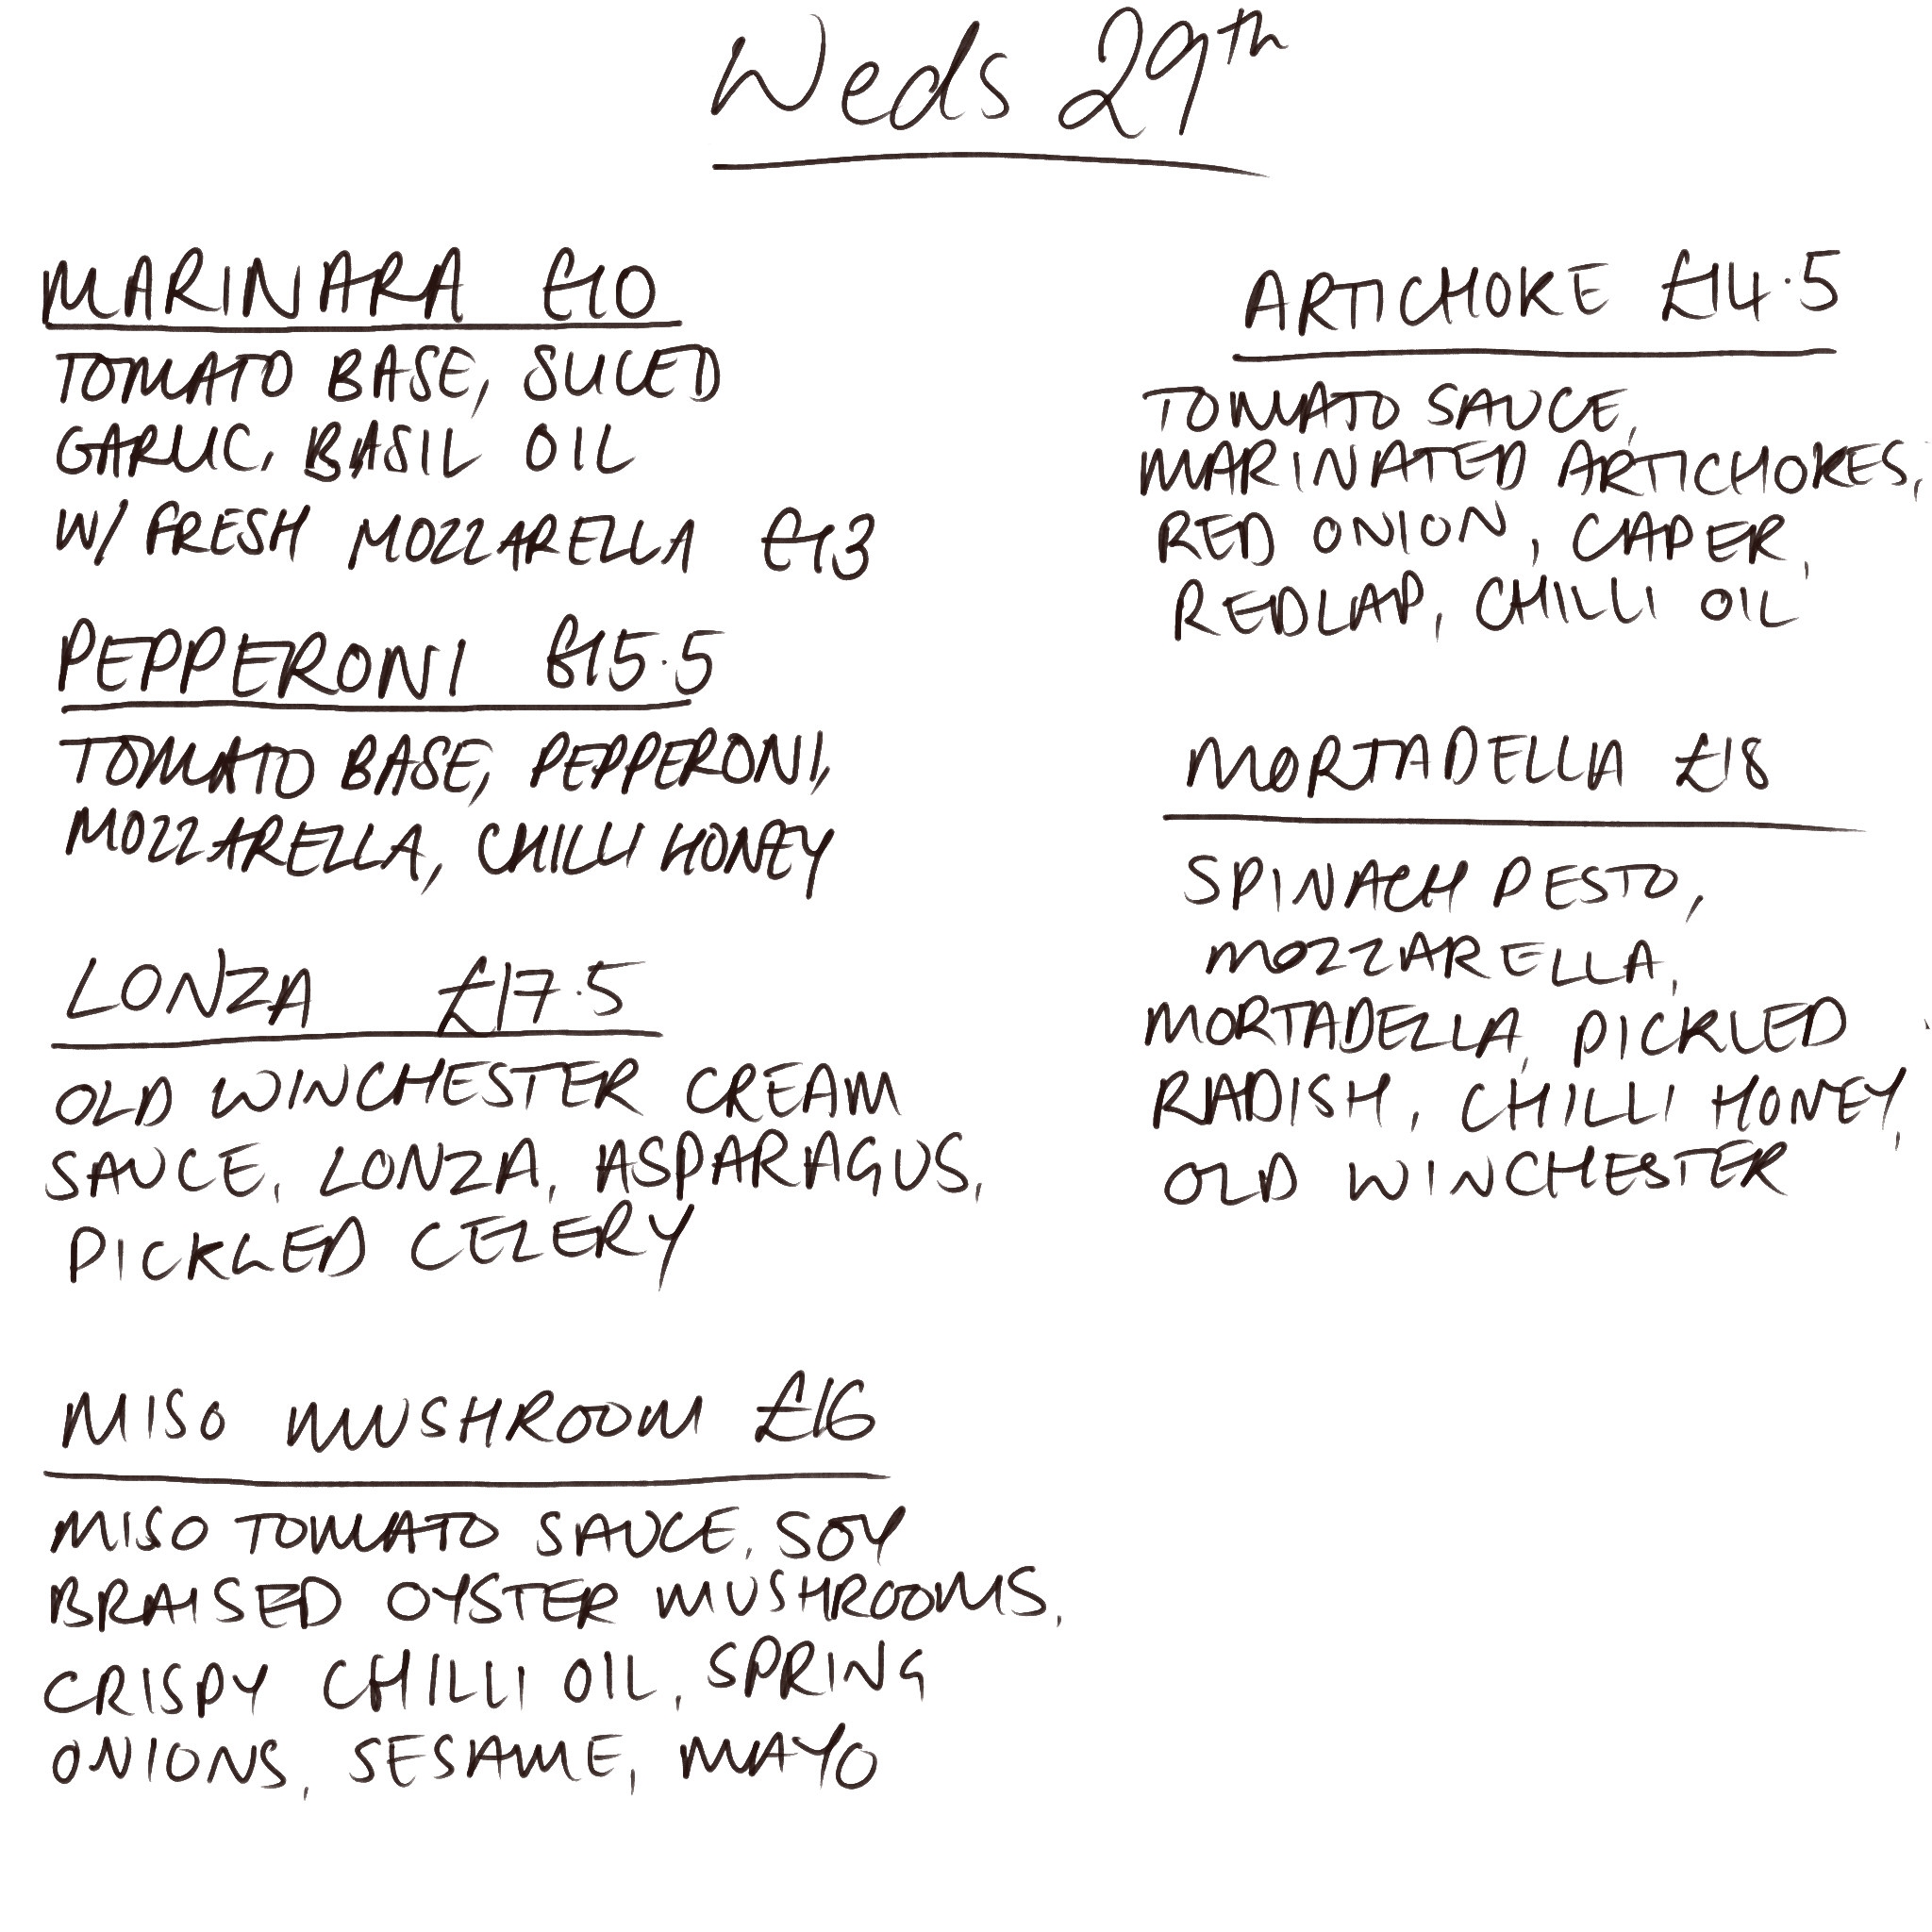 Weds 29th
MARINARA £10
TOMATO BASE, SLICED
GARLIC, BASIL OIL
W/ FRESH MOZZARELLA £13
PEPPERONI £15.5
TOMATO BASE, PEPPERONI,
MOZZARELLA, CHILLI HONEY
LONZA £17.5
OLD WINCHESTER CREAM
SAUCE, LONZA, ASPARAGUS,
PICKLED CELERY
MISO MUSHROOM £16
MISO TOMATO SAUCE, SOY
BRAISED OYSTER MUSHROOMS,
CRISPY CHILLI OIL, SPRING
ONIONS, SESAME, MAYO
ARTICHOKE £14.5
TOMATO SAUCE,
MARINATED ARTICHOKES,
RED ONION, CAPER,
REDLAP, CHILLI OIL
MORTADELLA £18
SPINACH PESTO,
MOZZARELLA,
MORTADELLA, PICKLED
RADISH, CHILLI HONEY,
OLD WINCHESTER